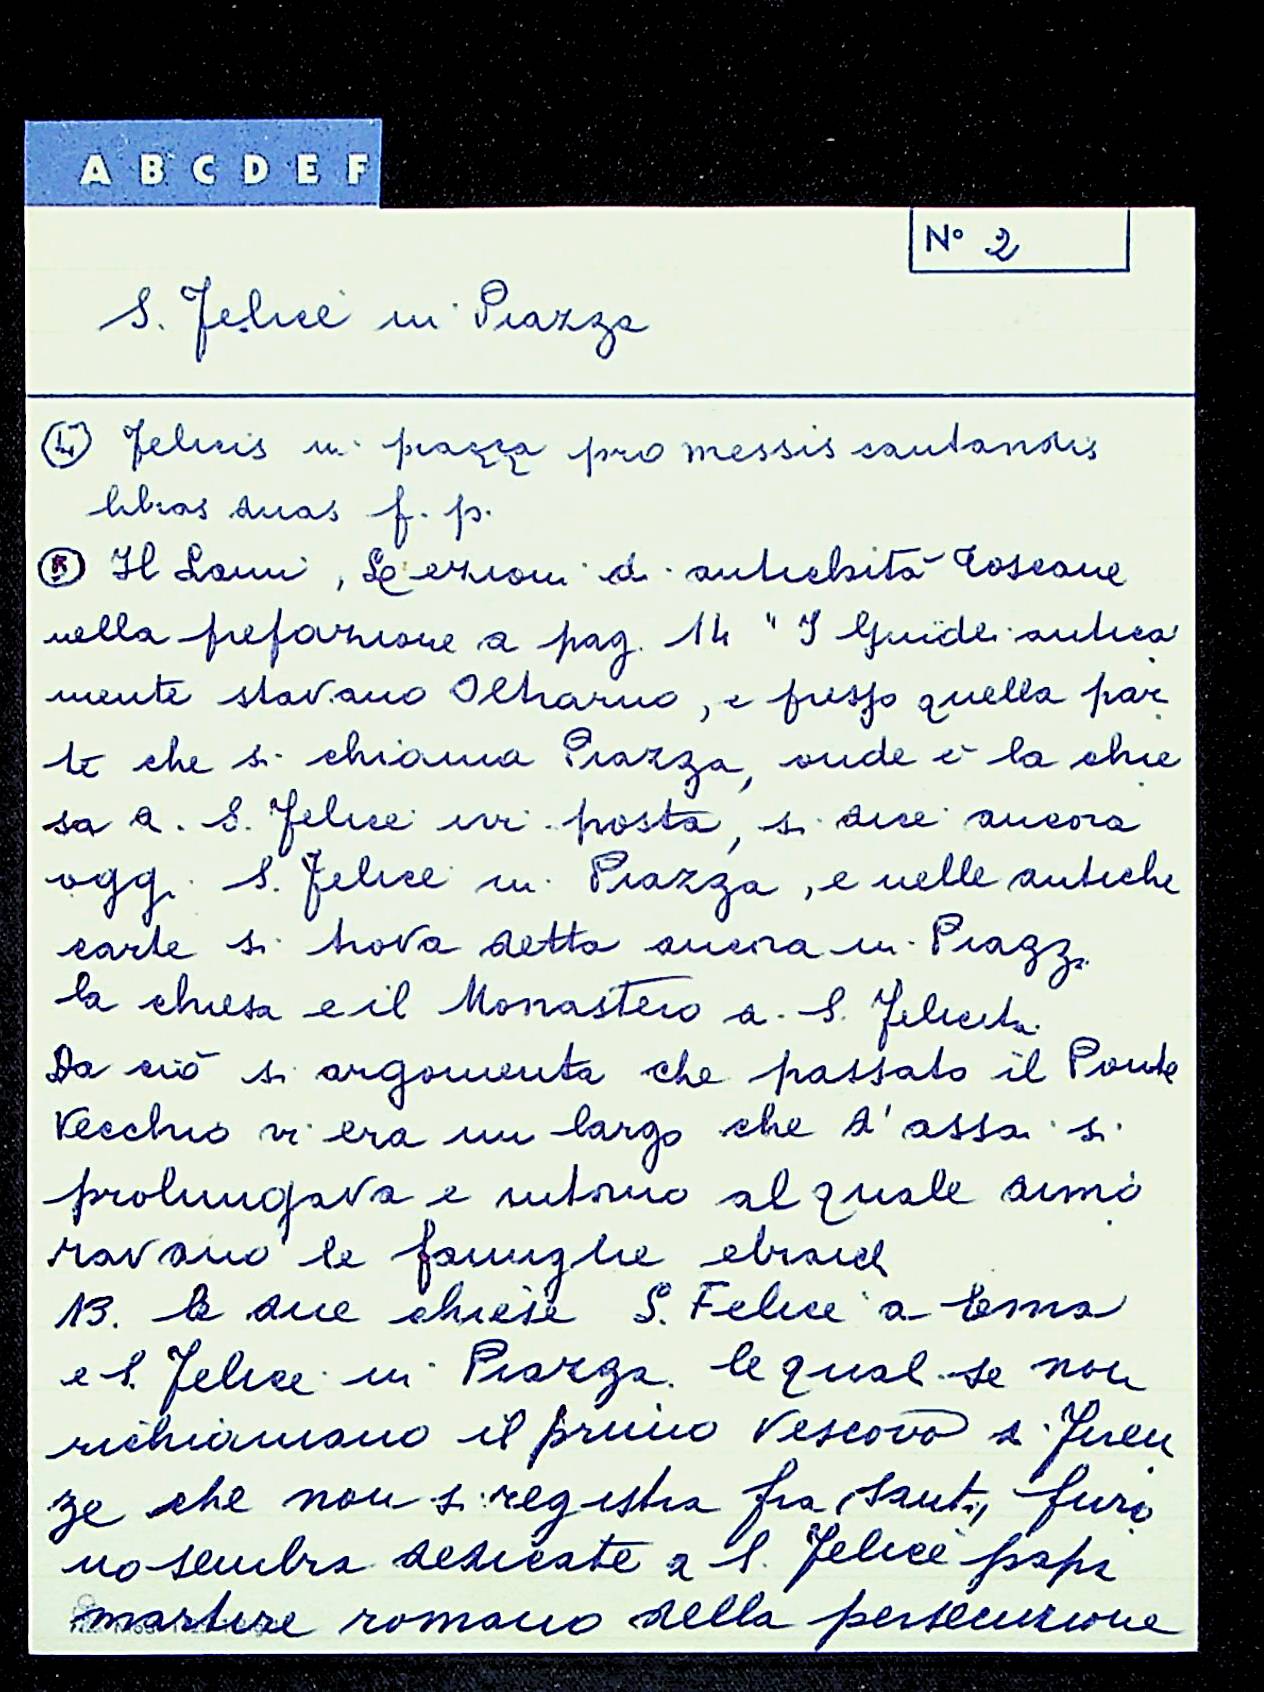 A B C D E F
N° 2
S. Felice in Piazza
④ Felicis in piazza pro messis cantandis
libras duas f. p.
⑤ Il Lami, Lezioni di antichità Toscane
nella prefazione a pag. 14 "I Guidi antica
mente stavano Oltrarno, e presso quella par
te che si chiama Piazza, onde è la chie
sa di S. Felice ivi posta, si dice ancora
oggi S. Felice in Piazza, e nelle antiche
carte si trova detta ancora in Piazza
la chiesa e il Monastero di S. Felicita.
Da ciò si argomenta che passato il Ponte
Vecchio vi era un largo che d'assai si
prolungava e intorno al quale dimo
ravano le famiglie ebraiche
13. le due chiese S. Felice a Ema
e S. Felice in Piazza. le quali se non
richiamano il primo Vescovo di Firen
ze che non si registra fra i Santi, furo
no sembra dedicate a S. Felice papa
martire romano della persecuzione